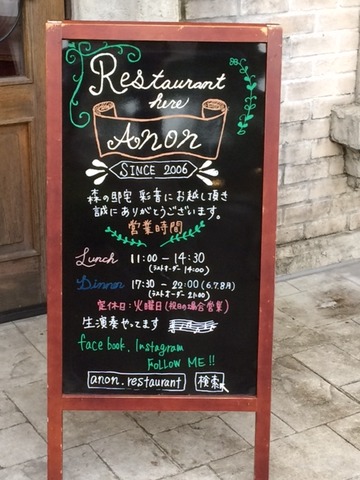 Restaurant
here
Anon
SINCE 2006
森の邸宅 彩音にお越し頂き
誠にありがとうございます。
営業時間
Lunch 11:00 - 14:30
(ラストオーダー 14:00)
Dinner 17:30 - 22:00 (6.7.8月)
(ラストオーダー 21:00)
定休日:火曜日(祝日の場合営業)
生演奏やってます
face book. Instagram
FOLLOW ME!!
anon.restaurant 検索